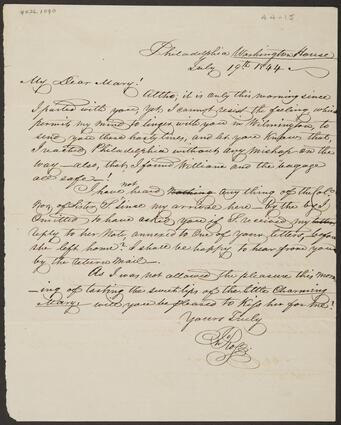 44-15
Philadelphia Washington House
July 19th 1844
My Dear Mary!
Altho, it is only this morning since
I parted with you, yet, I cannot resist the feeling which
permit my mind to linger with you in Wilmington, to
send you these hasty lines, and let you know, that,
I reached Philadelphia without any mishap on the
way — also, that I found William and the luggage
all safe!
I have not heard Nothing any thing of the Col.
nor, of Sister S. since my arrival here — By the by I
Omitted to have asked you if S. received my
reply to her Note annexed to One of your letters, before
she left home? I shall be happy to hear from you
by the return Mail —
As I was not allowed the pleasure this mor
-ning of tasting the sweet lips of the little Charming
Mary, will you be pleased to kiss her for me?
Yours Truly